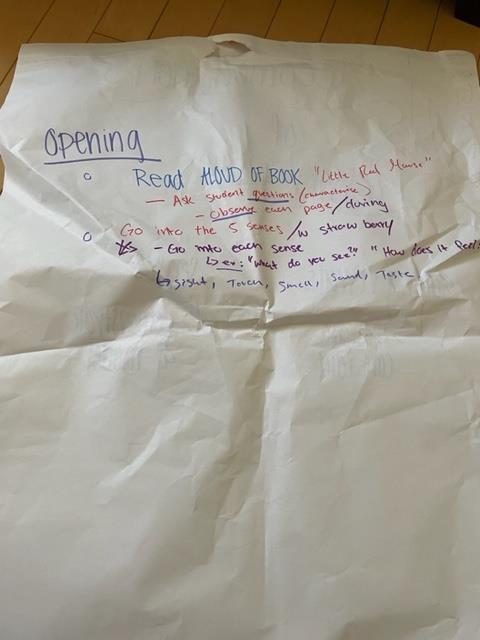 Opening
Read ALOUD OF BOOK "Little Red Mouse"
— Ask student questions (characterise)
- Observe each page / during
Go into the 5 senses / w strawberry
- Go into each sense
ex: "What do you see?" "How does it feel?
sight, Touch, Smell, Sound, Taste